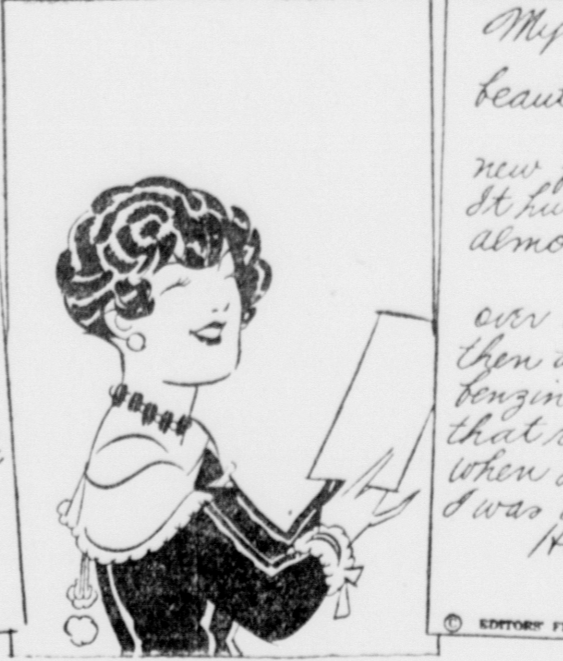 My
beaut
new
It hu
almo
over
then
benzin
that
when
I was
© EDITORS' F